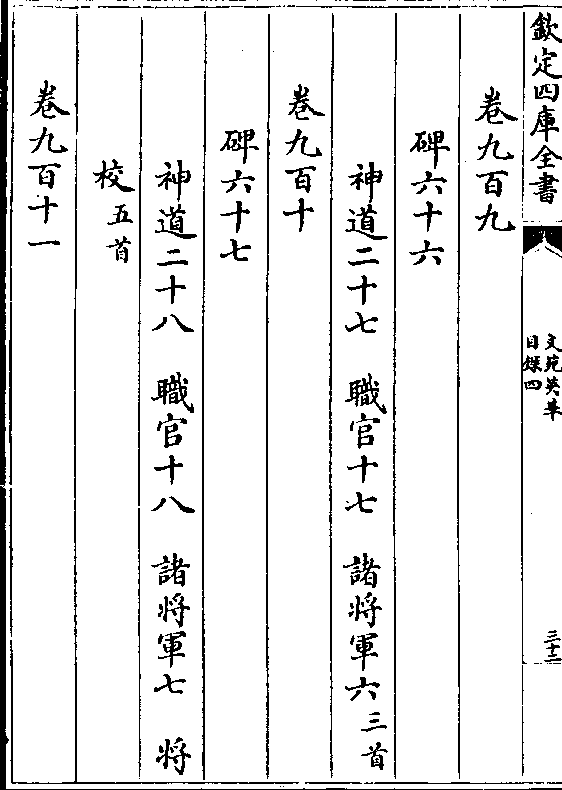 欽定四庫全書
文苑英華
目錄四
三十二
卷九百九
碑六十六
神道二十七　職官十七　諸將軍六三首
卷九百十
碑六十七
神道二十八　職官十八　諸將軍七　將
校五首
卷九百十一